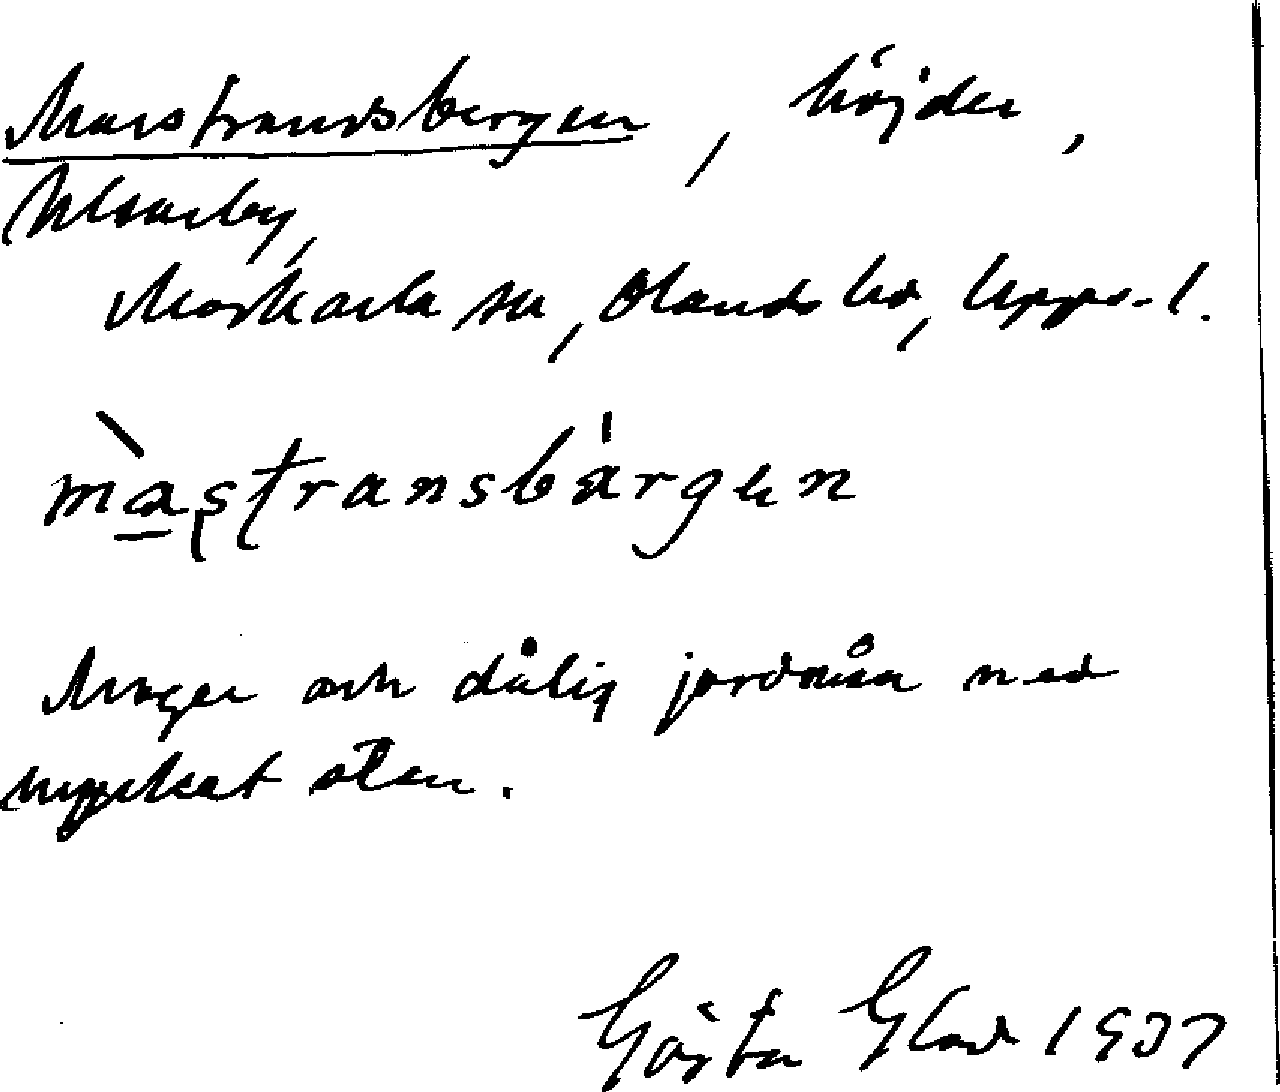 Marstrandsbergen, höjder,
Ulvarby,
Morkarla sn, Olands hd, Upps. l.
ma̱ştransbärgen
Mager och dålig jordmån med
mycket sten.
Gösta Glad 1937